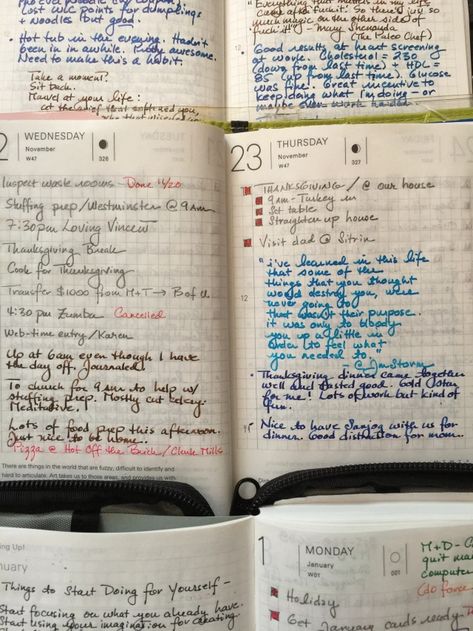 Lost WLC points for dumplings
+ Noodles but good.
• Hot tub in the evening. Hadn't
been in in awhile. Pretty awesome.
Need to make this a habit.
Take a moment!
Sit back.
Marvel at your life:
at the grief that softened you,
"Everything that matters in my life
much magic on the other side of
(The Paleo Chef)
Good results at heart screening
at work. Cholesterol = 230
(down from last time) HDL =
85 (up from last time). Glucose
was fine. Great incentive to
keep doing what I'm doing - or
maybe even work harder.
2 WEDNESDAY
November
W47
326
Inspect waste rooms - Done 11/20
Stuffing prep/Westminster @ 9am
7:30pm Loving Vincent
Thanksgiving Break
Cook for Thanksgiving
Transfer $1000 from M+T → B of A
4:30 pm Zumba Cancelled
Web-time entry/Karen
Up at 6am even though I have
the day off. Journaled.
To church for 9am to help w/
stuffing prep. Mostly cut celery.
Meditative!
Lots of food prep this afternoon.
Just nice to be home.
Pizza @ Hot Off the Brick/Chuck Mills
There are things in the world that are fuzzy, difficult to identify and
hard to articulate. Art takes us to those areas, and provides us with
23 THURSDAY
November
W47
327
THANKSGIVING/@ our house
9am - Turkey in
Set table
Straighten up house
Visit dad @ Sitrin
"i've learned in this life
that some of the
things that you thought
would destroy you, were
never going to
that wasn't their purpose.
it was only to bloody
you up a little in
order to feel what
you needed to"
- @JmStorm
12
• Thanksgiving dinner came together
well and tasted good. Gold Star
for me! Lots of work but kind of
fun.
• Nice to have with us for
dinner. Good distraction for mom.
ing Up!
January
Things to Start Doing for Yourself -
Start focusing on what you already have.
Start using your imagination for creating
1 MONDAY
January
W01
001
Holiday
Get January cards ready
M+D-
quit
computer
Go force